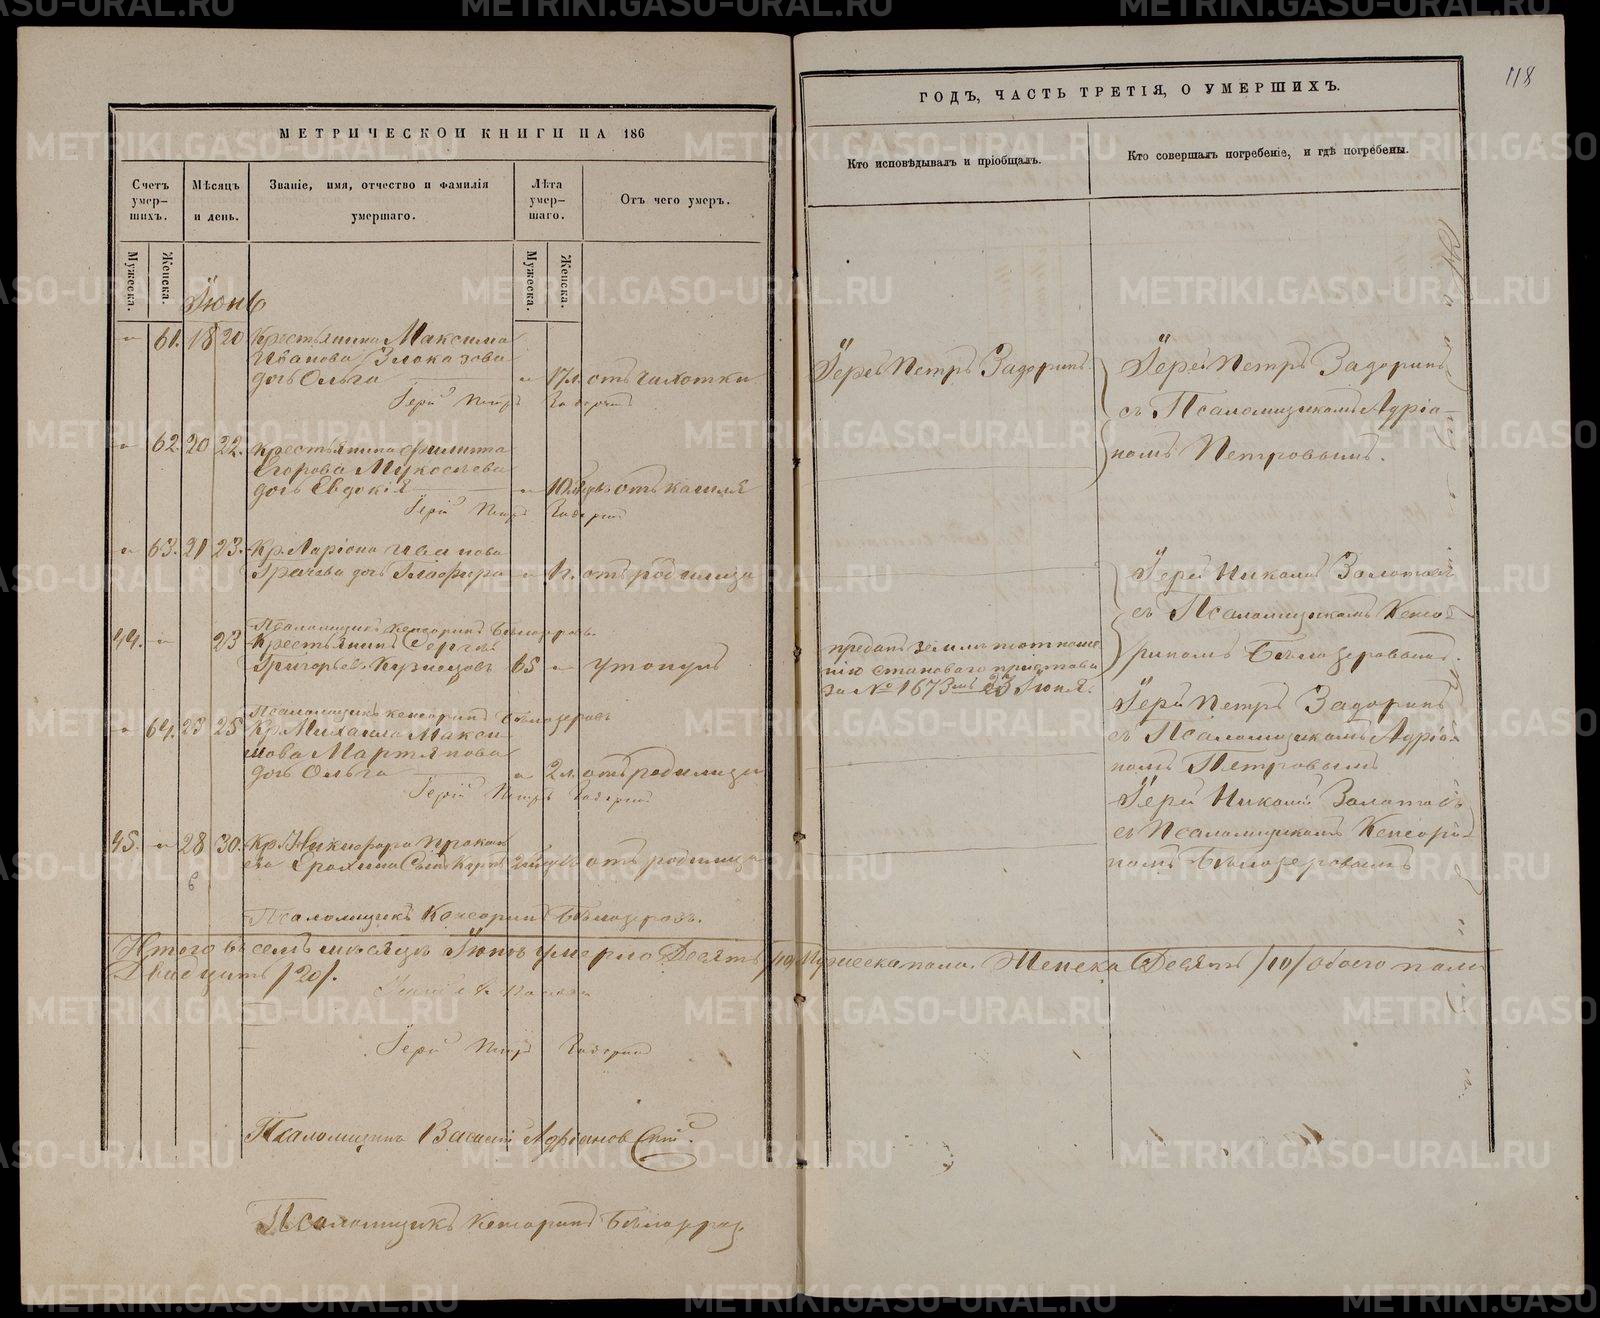 МЕТРИЧЕСКОЙ КНИГИ НА 186
Счетъ умер-шихъ.
Мѣсяцъ и день.
Званіе, имя, отчество и фамилія умершаго.
Лѣта умер-шаго.
Отъ чего умеръ.
Мужеска.
Женска.
Мужеска.
Женска.
Іюнь
61. 18 20 Крестьянина Максима
Иванова Злоказова
дочь Ольга 17 л. отъ чахотки
Іерей Петръ Задоринъ
62. 20 22. Крестьянина Филиппа
Егорова Мукосѣева
дочь Евдокія отъ кашля
Іерей Петръ Задоринъ
63. 21 23. Кр. Ларіона Иванова
Грачева дочь Глафира отъ родимца
Псаломщикъ Кенсоринъ Бѣлозеровъ.
44. 23 Крестьянинъ Сергѣй
Григорьевъ Кузнецовъ 65 утонулъ
Псаломщикъ Кенсоринъ Бѣлозеровъ
64. 23 25 Кр. Михаила Макси
мова Мартянова
дочь Ольга 2 л. отъ родимца
Іерей Петръ Задоринъ
45. 28 30. Кр. Никифора Прокоп
ева Ерохина сынъ отъ родимца
6
Псаломщикъ Кенсоринъ Бѣлозеровъ.
Итого въ семъ мѣсяцѣ Іюнѣ умерло Десять /10/ Мужеска пола. Женска Десять /10/ Обоего пола
Двадцать /20/.
Іерей Петръ Задоринъ
Псаломщикъ Василій Адріановскій.
Псаломщикъ Кенсоринъ Бѣлозеровъ.
118
ГОДЪ, ЧАСТЬ ТРЕТІЯ, О УМЕРШИХЪ.
Кто исповѣдывалъ и пріобщалъ.
Кто совершалъ погребеніе, и гдѣ погребены.
Іерей Петръ Задоринъ.
Іерей Петръ Задоринъ
съ Псаломщикомъ Адріа
номъ Петровымъ.
Іерей Николай Золотовъ
съ Псаломщикомъ Кенсо
риномъ Бѣлозеровымъ.
преданъ землѣ по отноше
нію становаго пристава
за № 1673мъ 23 Іюня.
Іерей Петръ Задоринъ
съ Псаломщикомъ Адріа
номъ Петровымъ
Іерей Николай Золотовъ
съ Псаломщикомъ Кенсори
номъ Бѣлозеровымъ
METRIKI.GASO-URAL.RU